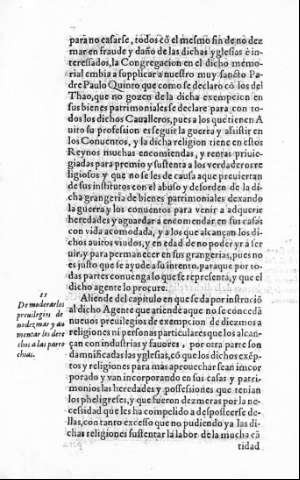 para no casarse, todos cõ el mesmo fin de no dez
mar en fraude y daño de las dichas yglesias è in
teressados, la Congregacion en el dicho memo
rial embia a supplicar a nuestro muy sancto Pa
dre Paulo Quinto que como se declaro cõ los del
Thao, que no gozen de la dicha exempcion en
sus bienes patrimoniales se declare para con to-
dos los dichos Caualleros, pues a los que tienen A
uito su profession es seguir la guerra y assistir en
los Conuentos, y la dicha religion tiene en estos
Reynos muchas encomiendas, y rentas priuile
giadas para premio y sustento a los verdaderos re
ligiosos y que no se les de causa a que peruiertan
de sus institutos con el abuso y desorden de la di
cha grangeria de bienes patrimoniales dexando
la guerra y los conuentos para venir a adquerir
heredades y aguardar a encomendar en sus casas
con vida acomodada, y a los que alcançan los di
chos auitos viudos, y en edad de no poder yr a ser
uir, y para permanecer en sus grangerias, pues no
es justo que se ayude a su intento, para que por to
das partes conuenga lo que se representa, y que el
dicho agente lo procure.
11
De moderar los
preuilegios de
no dezmar y au
mentar los dere
chos a las parro
chias.
Aliende del capitulo en que se da por instruciõ
al dicho Agente que atiende a que no se concedã
nueuos preuilegios de exempcion de dezmos a
religiones ni personas particulares que los alcan-
çan con industrias y fauores, por otra parte son
damnificadas las yglesias, cõ que los dichos exẽp
tos y religiones para mas aprouechar sean imcor
porado y van incorporando en sus casas y patri-
monios las heredades y possessiones que tenian
los pheligreses, y que fueron dezmeras por la ne-
cessidad que les ha compelido a desposseerse de-
llas, con tanto excesso que no pudiendo ya las di-
chas religiones sustentar la labor de la mucha cã
tidad